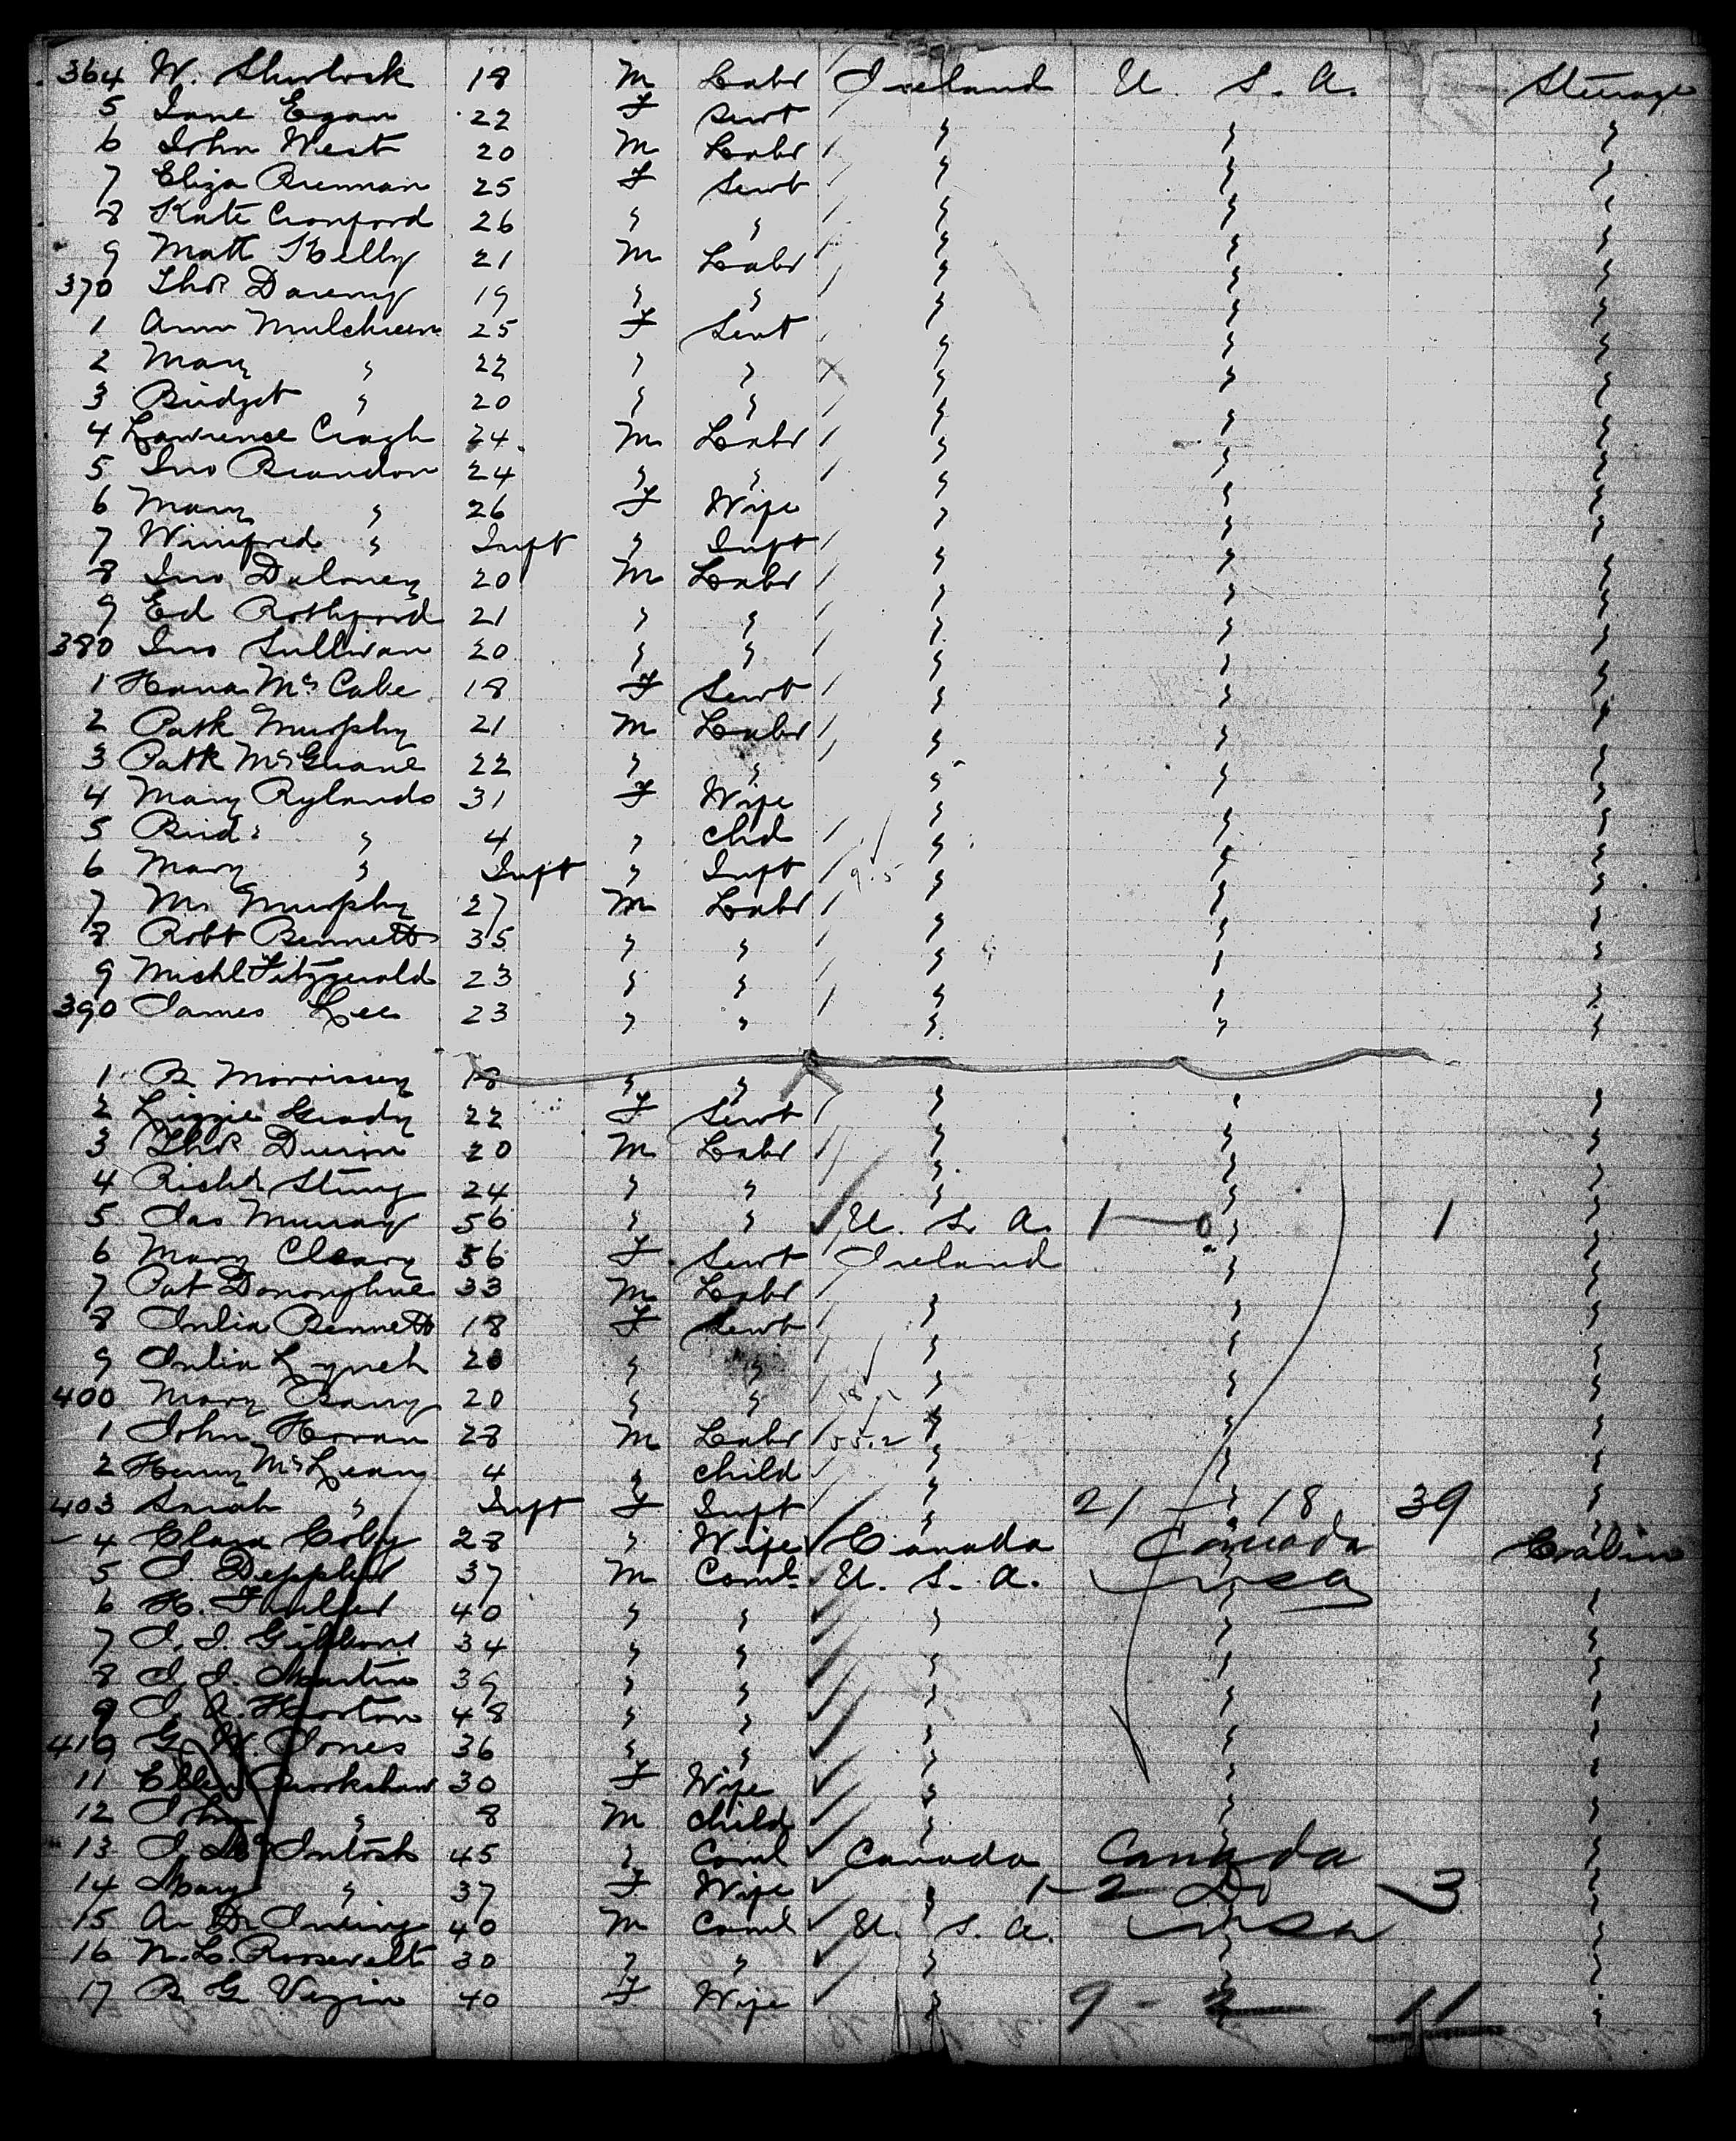 364 W. Shurlock 18 M Labr Ireland U. S. A. Steerage
5 Jane Egan 22 F Servt " " "
6 John West 20 M Labr " " "
7 Eliza Brennan 25 F Servt " " "
8 Kate Crawford 26 " " " " "
9 Matt Kelly 21 M Labr " " "
370 Thos 19 " " " " "
1 Ann 25 F Servt " " "
2 Mary " 22 " " " " "
3 Bridget " 20 " " " " "
4 Lawrence 24 M Labr " " "
5 Jno Brandon 24 " " " " "
6 Mary " 26 F Wife " " "
7 Winifred " Inft " Inft " " "
8 Jno Duloney 20 M Labr " " "
9 Ed Rothford 21 " " " " "
380 Jno Sullivan 20 " " " " "
1 Hana McCabe 18 F Servt " " "
2 Patk Murphy 21 M Labr " " "
3 Patk McGuane 22 " " " " "
4 Mary Rylands 31 F Wife " " "
5 Brid: " 4 " chd " " "
6 Mary " Inft " Inft " " "
7 M. Murphy 27 M Labr " " "
8 Robt Bennett 35 " " " " "
9 Michl Fitzgerald 23 " " " " "
390 James Lee 23 " " " " "
1 B. Morrissey 18 " " " " "
2 Lizzie Grady 22 F Servt " " "
3 Thos 20 M Labr " " "
4 Richd 24 " " " " "
5 Jas Murray 56 " " U. S. A. 1 — 0 " 1 "
6 Mary Cleary 56 F Servt Ireland " "
7 Pat Donoghue 33 M Labr " " "
8 Julia Bennett 18 F Servt " " "
9 Julia Lynch 20 " " " " "
400 Mary Barry 20 " " " " "
1 John Horan 28 M Labr " " "
2 Henry McLean 4 " child " " "
403 Sarah " Inft F Inft " 21 — 18 39 "
4 Clara Coby 28 " Wife Canada Canada Cabin
5 J. Deppler 37 M Coml U. S. A. USA "
6 H. 40 " " " " "
7 J. J. Gibbons 34 " " " " "
8 J. J. Martin 39 " " " " "
9 J. A. Horton 48 " " " " "
410 G. W. Jones 36 " " " " "
11 Ellen Brookshaw 30 F Wife " " "
12 John " 8 M child " " "
13 J. McIntosh 45 " Coml Canada Canada "
14 Mary " 37 F Wife " 1-2 Do 3 "
15 A. D. 40 M Coml U. S. A. USA "
16 N. L. Roosevelt 30 " " " " "
17 B. G. Virgin 40 F Wife " 9 - 2 11 "